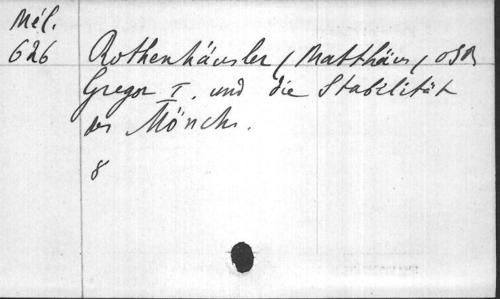 Mél.
626
Rothenhäusler, Matthäus, OSB
Gregor I. und die Stabilität
des Mönchs.
8